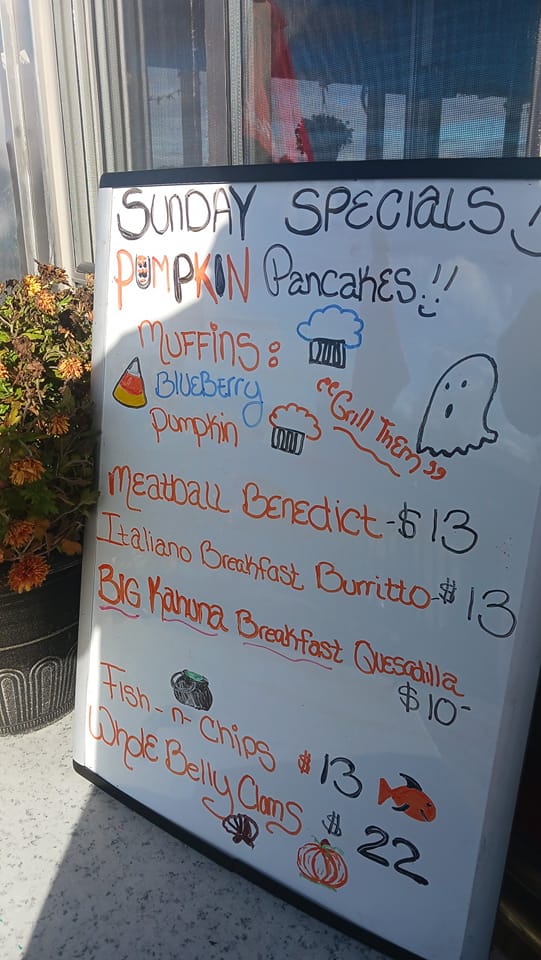 SUNDAY SPECIALS
PUMPKIN Pancakes!!
MUFFINS:
BLUEBERRY
Pumpkin
"Grill Them"
Meatball Benedict - $13
Italiano Breakfast Burritto - $13
BIG Kahuna Breakfast Quesadilla
$10-
Fish-n-Chips $13
Whole Belly Clams $22